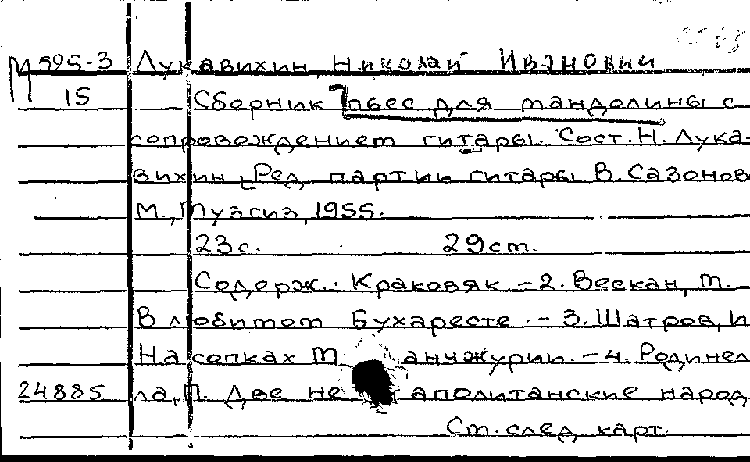 М 595-3 Лукавихин, Николай Иванович
15 Сборник пьес для мандолины с
сопровождением гитары. Сост. Н. Лука-
вихин. Ред. партии гитары В. Сазонов
М., Музгиз, 1955.
23 с. 29 ст.
Содерж.: Краковяк. – 2. Вескан, Т.
В любитот Бухаресте. – 3. Шатров, И
На сопках М анчжурии. – 4. Родинел
24885 ла, П. Две не аполитанские народ
Ст. след. карт.